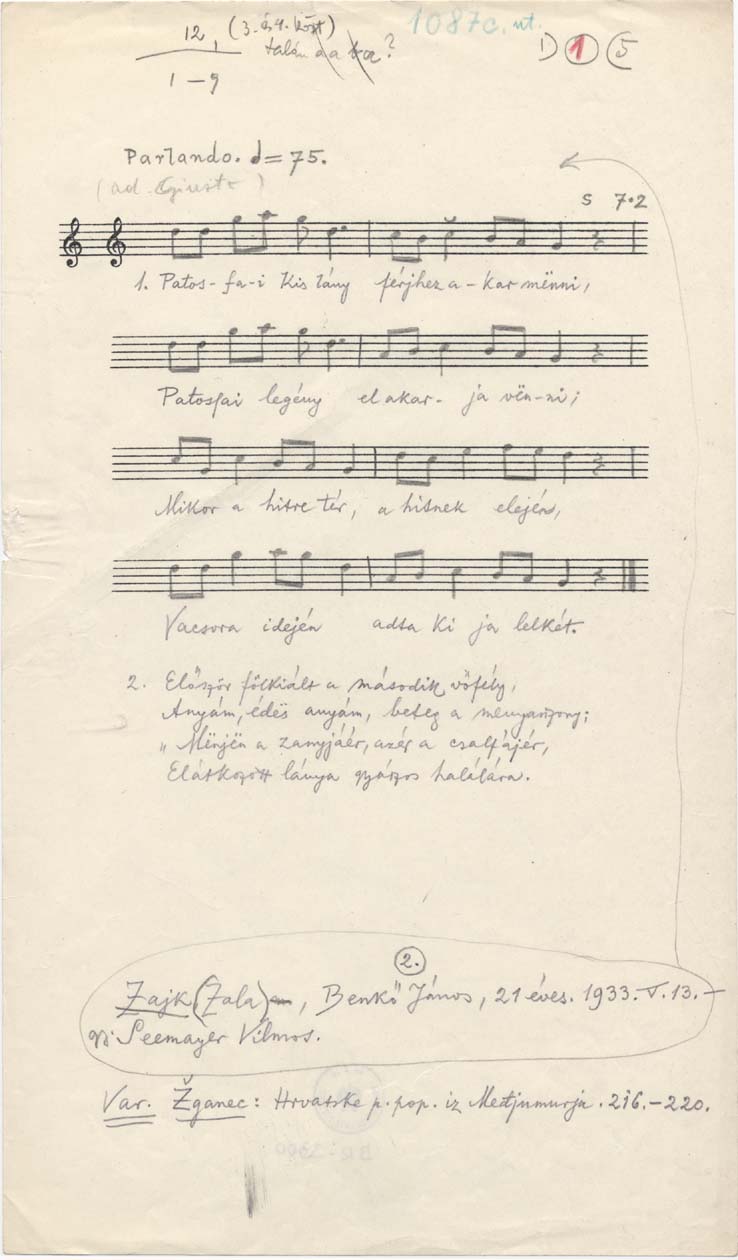 12, (3. és 4. közt) 1087c. nt.
1–9 talán a a ? D 1 5
Parlando. = 75.
(ad. Giusto)
s 7·2
1. Patos-fa-i Kis lány férjhez a-kar mënni,
Patosfai legény el akar-ja vën-ni;
Mikor a hitre tér, a hitnek elején,
Vacsora idején adta ki ja lelkét.
2. Először fölkiált a második vőfély,
Anyám, édës anyám, beteg a mënyasszony;
„Mënjën a
Elátkozott lánya gyászos halálára.
2.
Zajk (Zala), Benkő János, 21 éves. 1933. V. 13. –
gy: Seemayer Vilmos.
Var. Žganec: Hrvatske p. pop. iz Medjumurja. 216.–220.